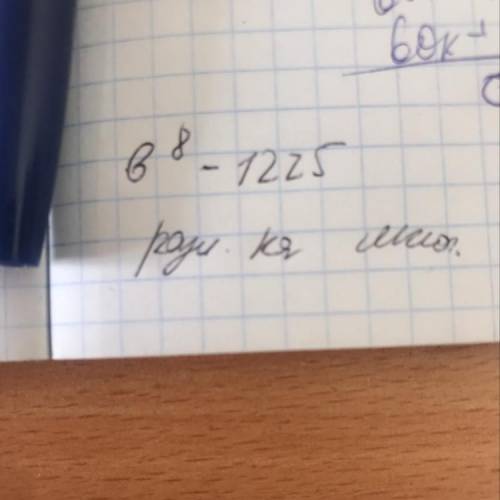 60к
в⁸ - 1225
разл. на множ.